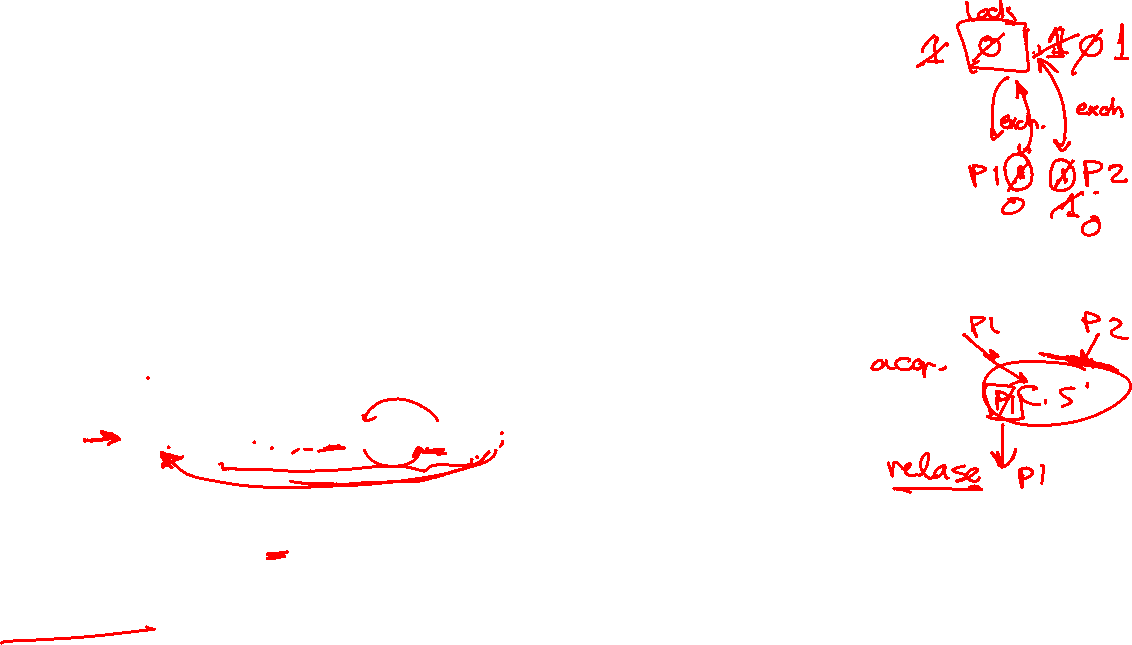 lock
1 0 1 0 1
exch. exch
P1 1 1 P2
0 1
0
P1 P2
acqr.
P1 C.S
relase P1